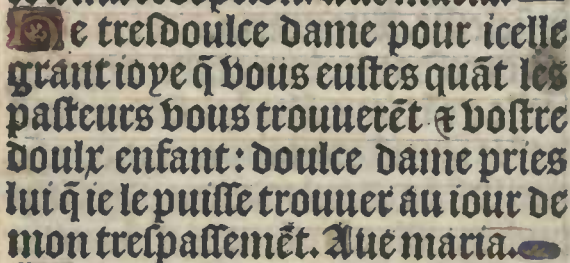 De tresdoulce dame pour icelle
grant ioye q̃ vous eustes quãt les
pasteurs vous trouuerẽt ⁊ vostre
doulx enfant: doulce dame pries
lui q̃ ie le puisse trouuer au iour de
mon trespassemẽt. Aue maria.